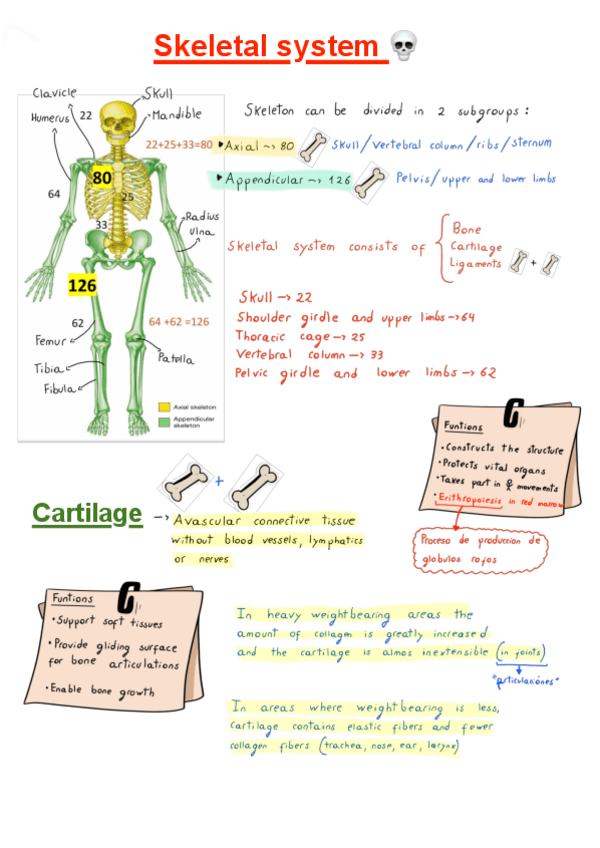 Skeletal system
Clavicle
Skull
Humerus
22
Mandible
Skeleton can be divided in 2 subgroups :
22+25+33=80
Axial ~> 80
Skull/vertebral column/ribs/sternum
80
Appendicular ~> 126
Pelvis/upper and lower limbs
64
25
Radius
Ulna
33
Skeletal system consists of
Bone
Cartilage
Ligaments
+
126
Skull -> 22
Shoulder girdle and upper limbs ->64
62
64 +62 =126
Thoracic cage -> 25
Femur
Patella
Vertebral column -> 33
Tibia
Pelvic girdle and lower limbs -> 62
Fibula
Axial skeleton
Appendicular
skeleton
Funtions
• Constructs the structure
• Protects vital organs
• Takes part in movements
• Erithropoiesis in red marrow
Proceso de produccion de
globulos rojos
+
Cartilage
-> Avascular connective tissue
without blood vessels, lymphatics
or nerves
Funtions
• Support soft tissues
• Provide gliding surface
for bone articulations
• Enable bone growth
In heavy weightbearing areas the
amount of collagen is greatly increased
and the cartilage is almos inextensible (in joints)
"articulaciones"
In areas where weightbearing is less,
cartilage contains elastic fibers and fewer
collagen fibers (trachea, nose, ear, larynx)